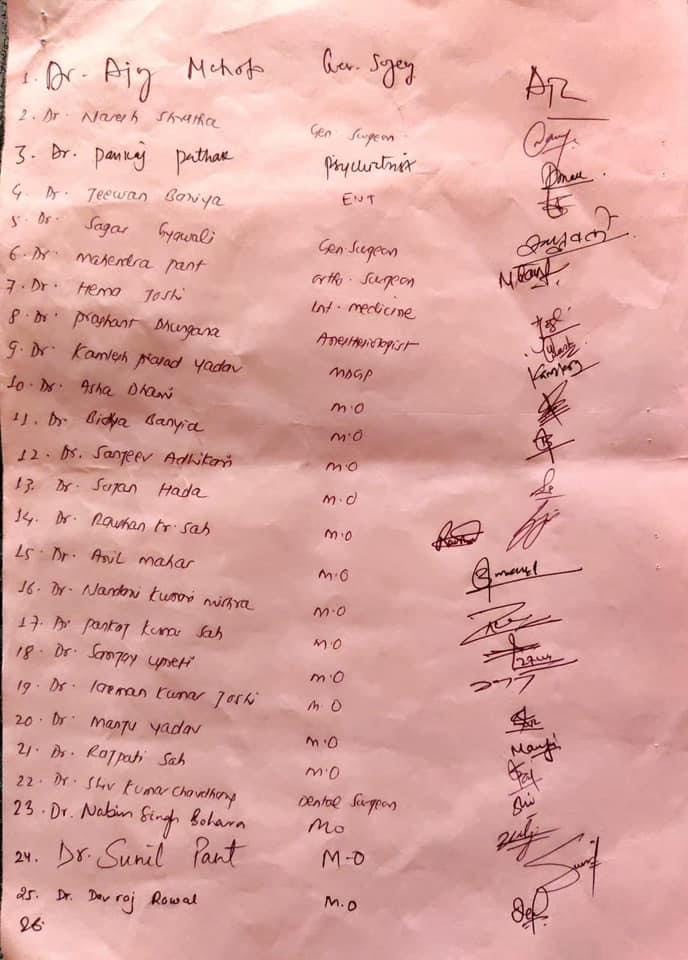 1. Dr. Ajy Mehota Gen. Sugey
2. Dr. Naresh Shretha Gen Surgeon.
3. Dr. Pankaj Pathak Psychiatrist
4. Dr. Jeewan Baniya ENT
5. Dr. Sagar Gyawali Gen Surgeon
6. Dr. Mahendra Pant Ortho. Surgeon
7. Dr. Hema Joshi Int. medicine
8. Dr. Prashant Dhungana Anesthesiologist
9. Dr. Kamlesh Prasad Yadav MDGP
10. Dr. Asha Dhami M.O
11. Dr. Bidya Banyia M.O
12. Dr. Sanjeev Adhikari M.O
13. Dr. Sujan Hada M.O
14. Dr. Raushan Kr. Sah M.O
15. Dr. Anil Mahar M.O
16. Dr. Nandani Kumari Mishra M.O
17. Dr Pankaj Kumar Sah M.O
18. Dr. Sanjay Upreti M.O
19. Dr. Laxman Kumar Joshi M.O
20. Dr. Manju Yadav M.O Manju
21. Dr. Rajpati Sah M.O Raj
22. Dr. Shiv Kumar Chaudhary Dental Surgeon Shi
23. Dr. Nabin Singh Bohara Mo
24. Dr. Sunil Pant M.O Sunil
25. Dr. Dev raj Rawal M.O
26.